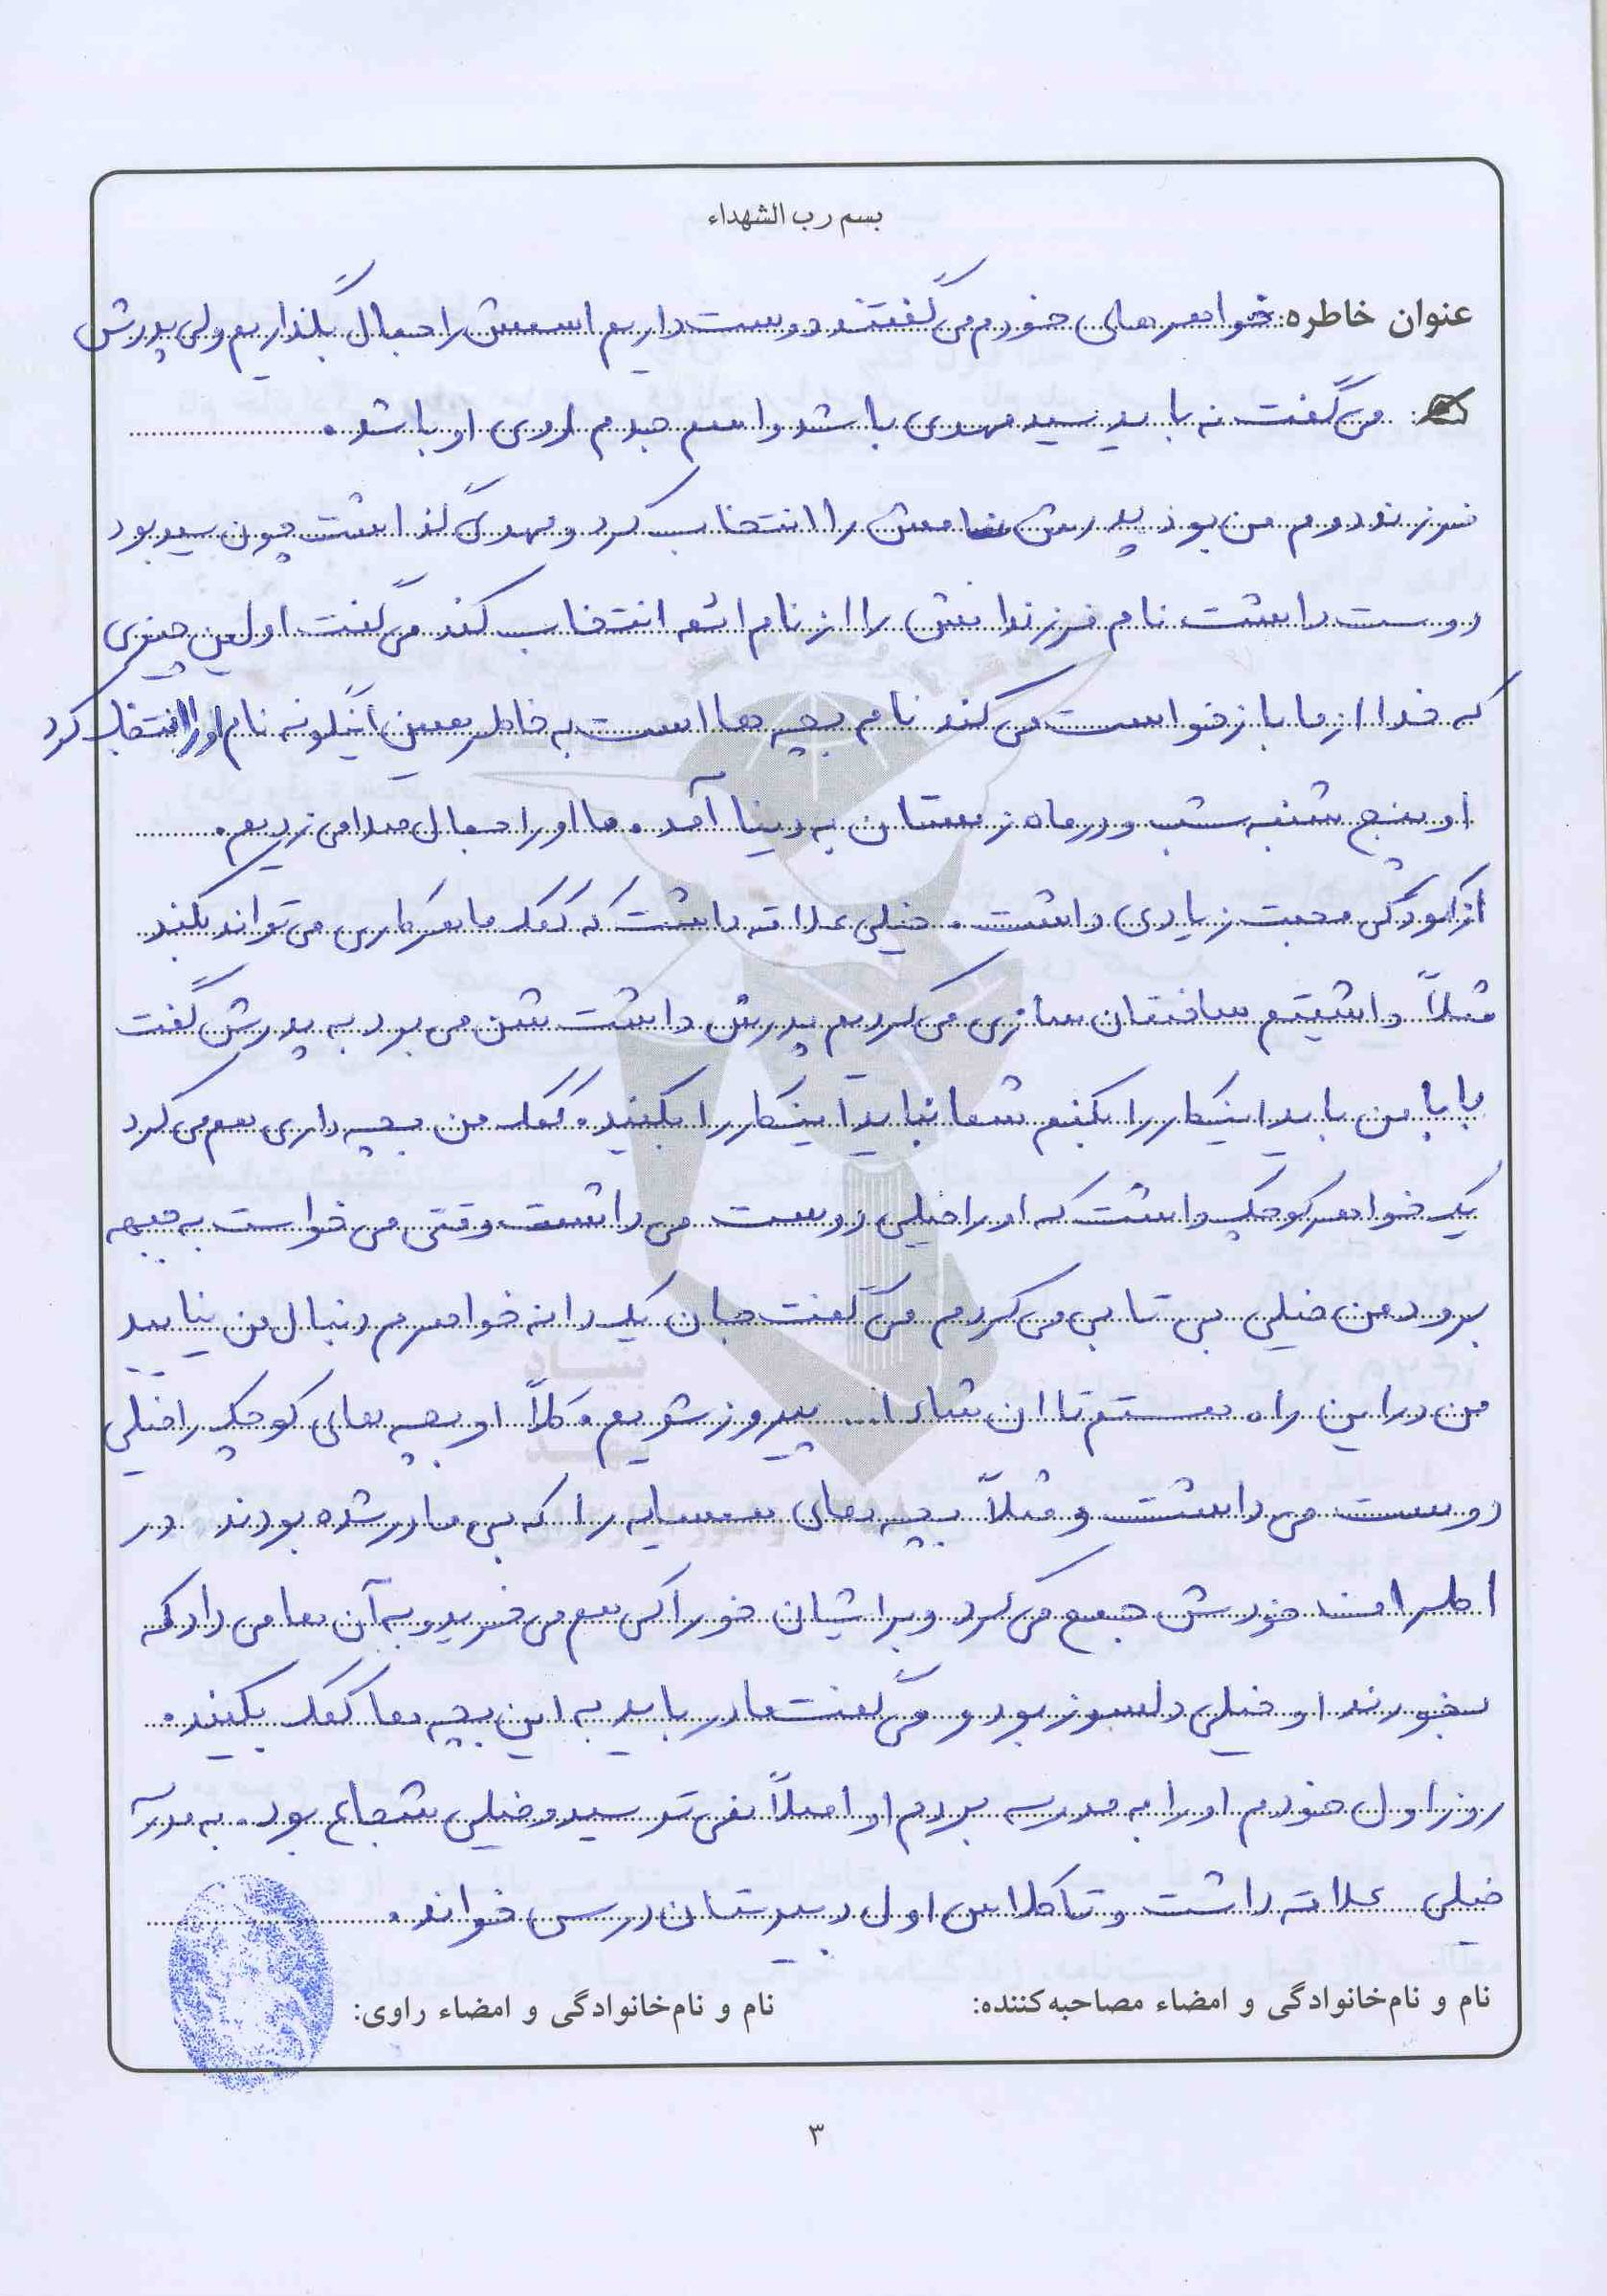 بسم رب الشهداء
عنوان خاطره: خواهرهای خودم می گفتند دوست داریم اسمش را جمال بگذاریم ولی پدرش
می گفت نه باید سید مهدی باشد و اسم جدم روی او باشد.
فرزند دوم من بود پدرش نامش را انتخاب کرد و مهدی گذاشت چون سید بود
دوست داشت نام فرزندانش را از نام ائمه انتخاب کند می گفت اولین چیزی
که خدا از ما بازخواست می کند نام بچه ها است به خاطر همین اینگونه نام او را انتخاب کرد
او پنج شنبه شب و در ماه زمستان به دنیا آمد. ما او را جمال صدا می زدیم.
از کودکی محبت زیادی داشت. خیلی علاقه داشت که کمک ما هر کاری می تواند بکند
مثلاً داشتیم ساختمان سازی می کردیم پدرش داشت شن می برد به پدرش گفت
بابا من باید اینکار را بکنم شما نباید اینکار را بکنید. کمک من بچه داری هم می کرد
یک خواهر کوچک داشت که او را خیلی دوست می داشت وقتی می خواست به جبهه
برود من خیلی بی تابی می کردم می گفت جان یک دانه خواهرم دنبال من نیایید
من در این راه هستم تا ان شاء ا... پیروز شویم. کلاً او بچه های کوچک را خیلی
دوست می داشت و مثلاً بچه های همسایه را که بی مادر شده بودند در
اطراف خودش جمع می کرد و برایشان خوراکی هم می خرید و به آن ها می داد که
بخورند او خیلی دلسوز بود و می گفت مادر باید به این بچه ها کمک بکنید.
روز اول خودم او را به مدرسه بردم او اصلاً نمی ترسید و خیلی شجاع بود. به
خیلی علاقه داشت و تا کلاس اول دبیرستان درس خواند.
نام و نام‌خانوادگی و امضاء مصاحبه‌کننده: نام و نام‌خانوادگی و امضاء راوی:
۳